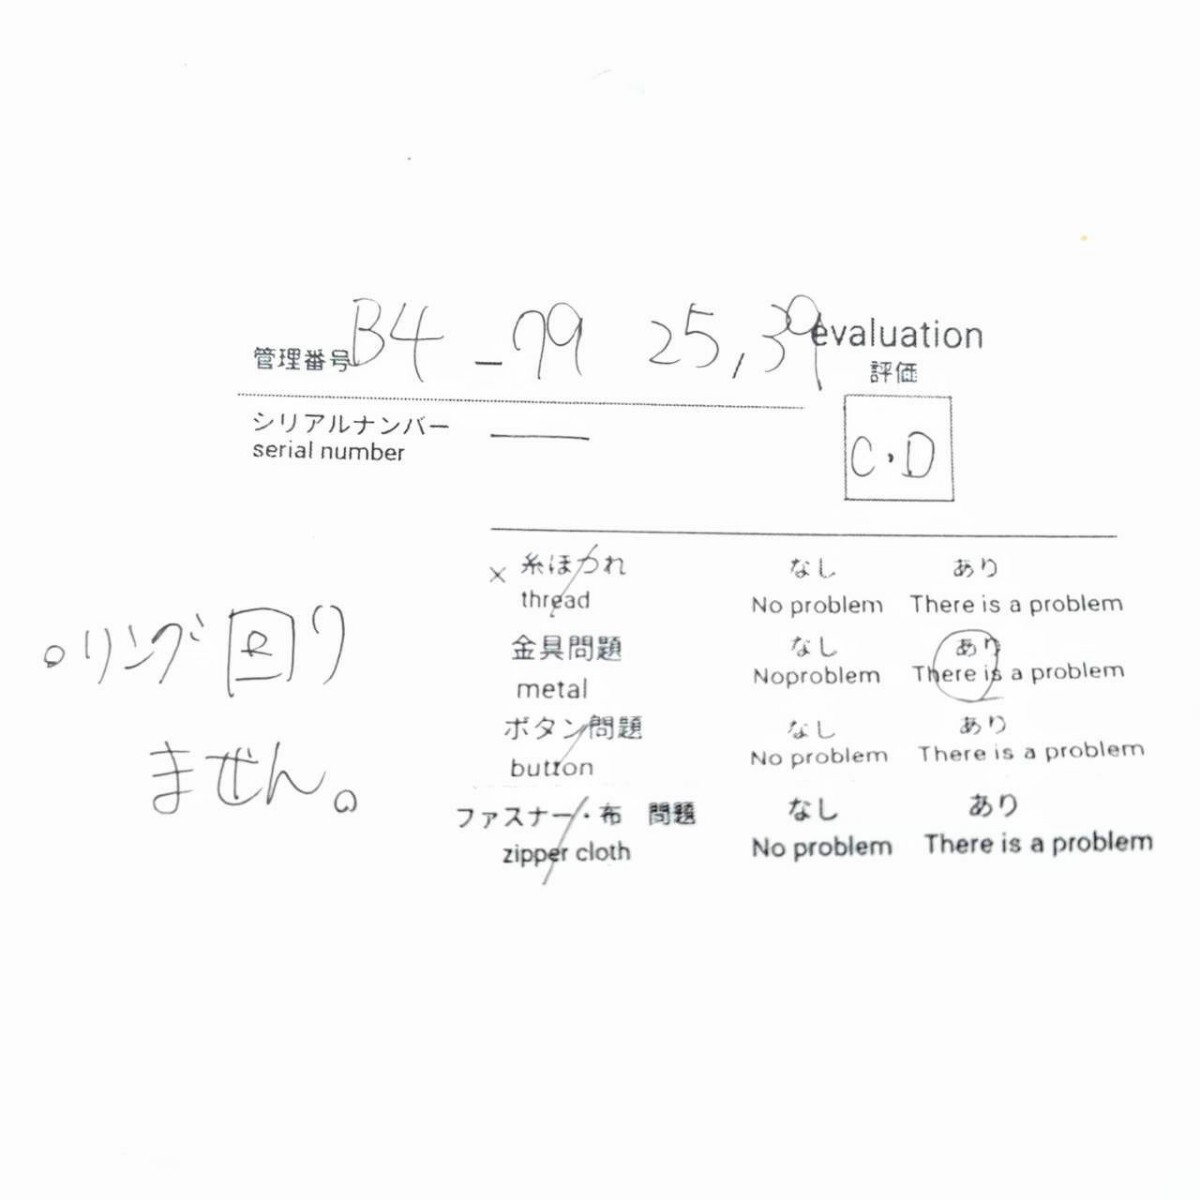 管理番号 B4-79 25,39 evaluation
評価
シリアルナンバー —
serial number
C・D
× 糸ほつれ なし あり
thread No problem There is a problem
金具問題 なし あり
metal Noproblem There is a problem
ボタン問題 なし あり
button No problem There is a problem
ファスナー・布 問題 なし あり
zipper cloth No problem There is a problem
。リング回り
ません。